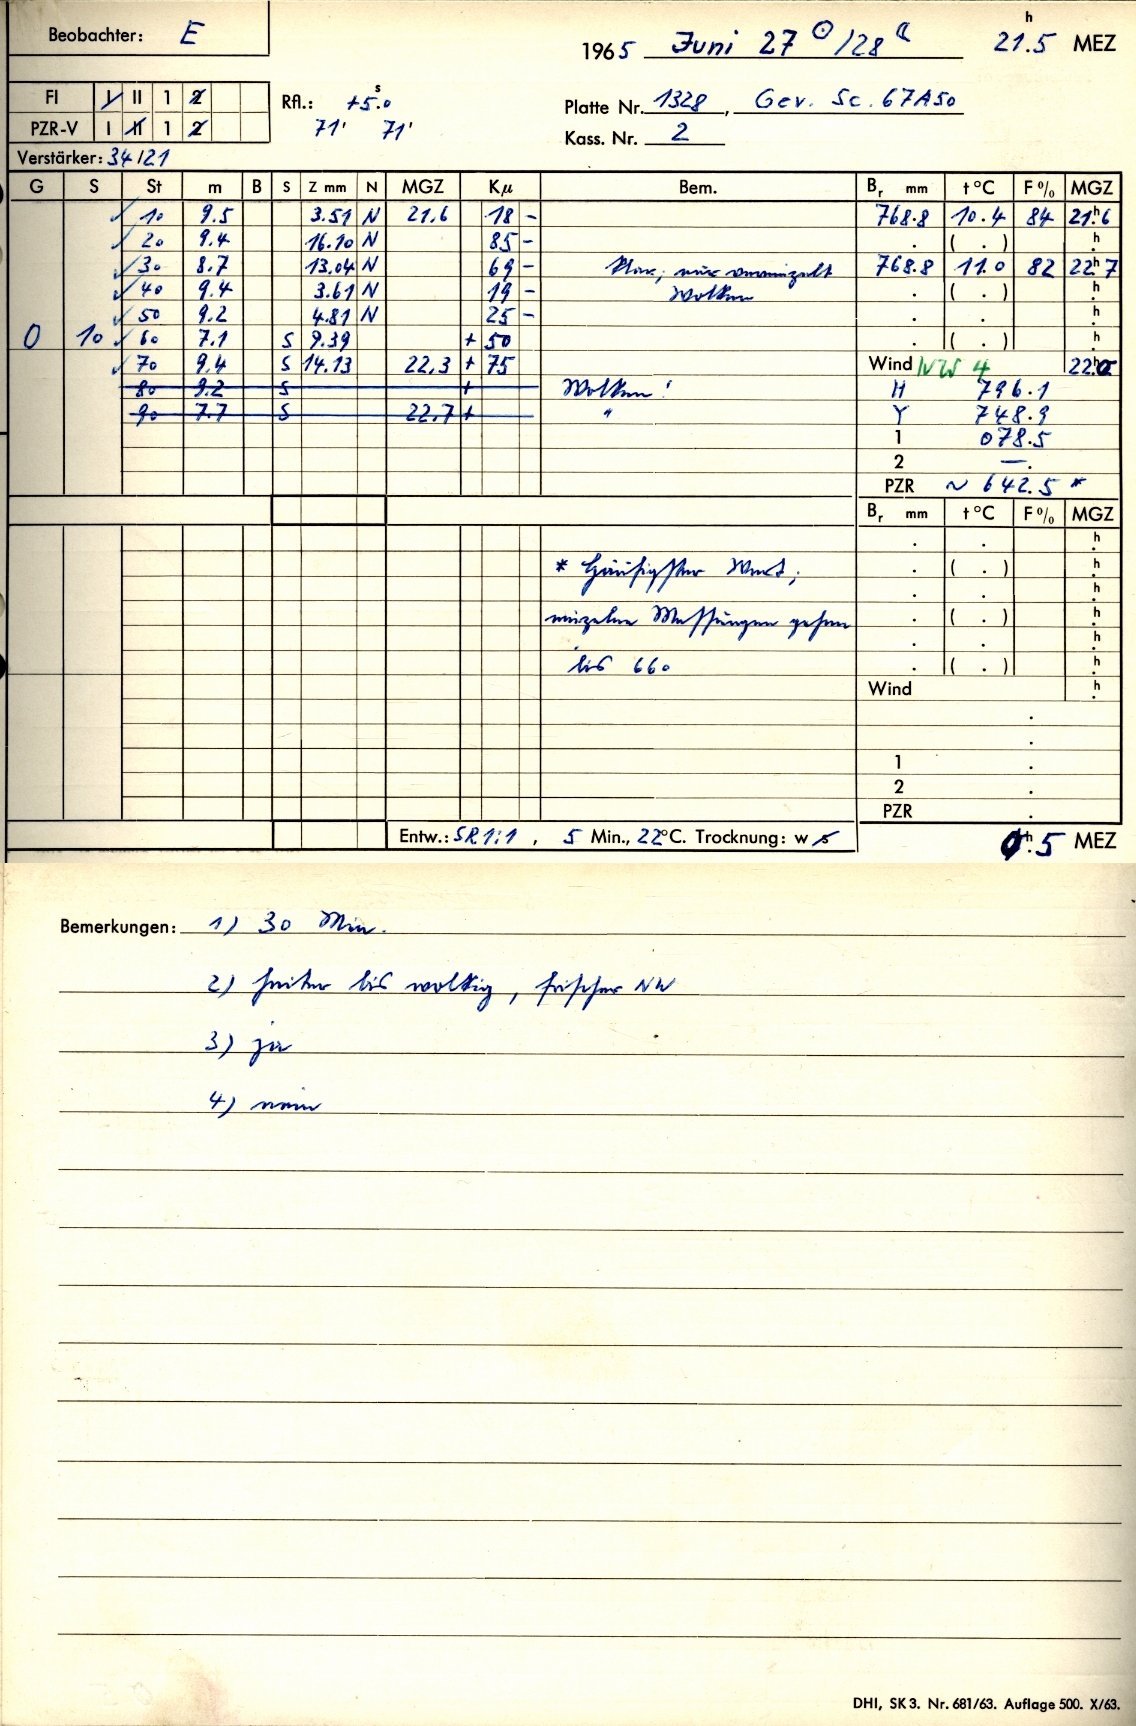 Beobachter: E
1965 Juni 27 ☉/28 ☾ 21h.5 MEZ
FI I II 1 2
PZR-V I II 1 2
Rfl.: +5s.0
71' 71'
Platte Nr. 1328, Gev. Sc. 67A50
Kass. Nr. 2
Verstärker: 34/21
G S St m B S Z mm N MGZ Kμ Bem. Br mm t °C F % MGZ
✓ 10 9.5 3.51 N 21.6 18 - 768.8 10.4 84 21h.6
✓ 20 9.4 16.10 N 85 - . ( . ) h.
✓ 30 8.7 13.04 N 69 - Klar, nur vereinzelt 768.8 11.0 82 22h.7
✓ 40 9.4 3.61 N 19 - Wolken . ( . ) h.
✓ 50 9.2 4.81 N 25 - . . h.
0 10 ✓ 60 7.1 S 9.39 + 50 . ( . ) h.
✓ 70 9.4 S 14.13 22.3 + 75 Wind NW 4 22h.0
80 9.2 S + Wolken! H 796.1
90 7.7 S 22.7 + " Y 748.9
1 078.5
2 —.
PZR ~ 642.5 *
Br mm t °C F % MGZ
. . h.
* Häufigster Wert; . ( . ) h.
. . h.
einzelne Messungen gehen . ( . ) h.
. . h.
bis 660 . ( . ) h.
Wind h.
.
.
1 .
2 .
PZR .
Entw.: SR 1:1, 5 Min., 22°C. Trocknung: w s
h.5 MEZ
Bemerkungen: 1) 30 Min.
2) heiter bis wolkig, frischer NW
3) ja
4) nein
DHI, SK 3. Nr. 681/63. Auflage 500. X/63.